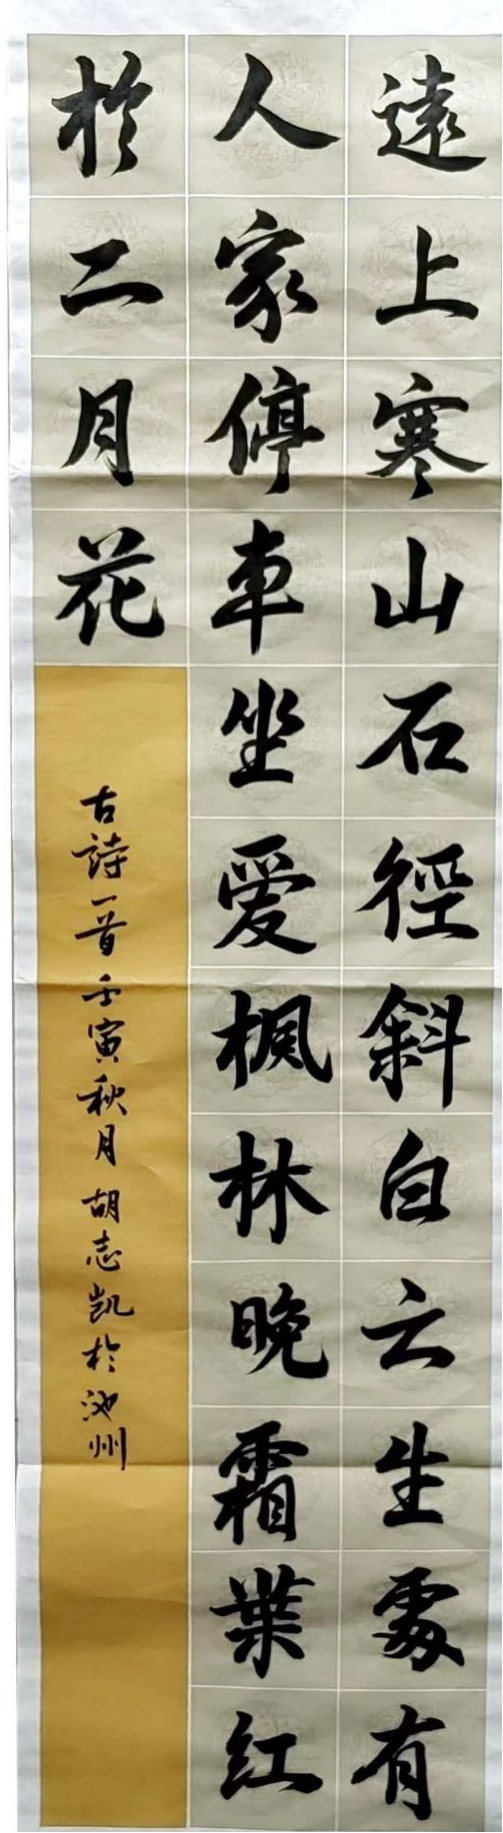 遠上寒山石徑斜白云生處有
人家停車坐爱楓林晚霜葉红
於二月花
古詩一首壬寅秋月胡志凯於池州